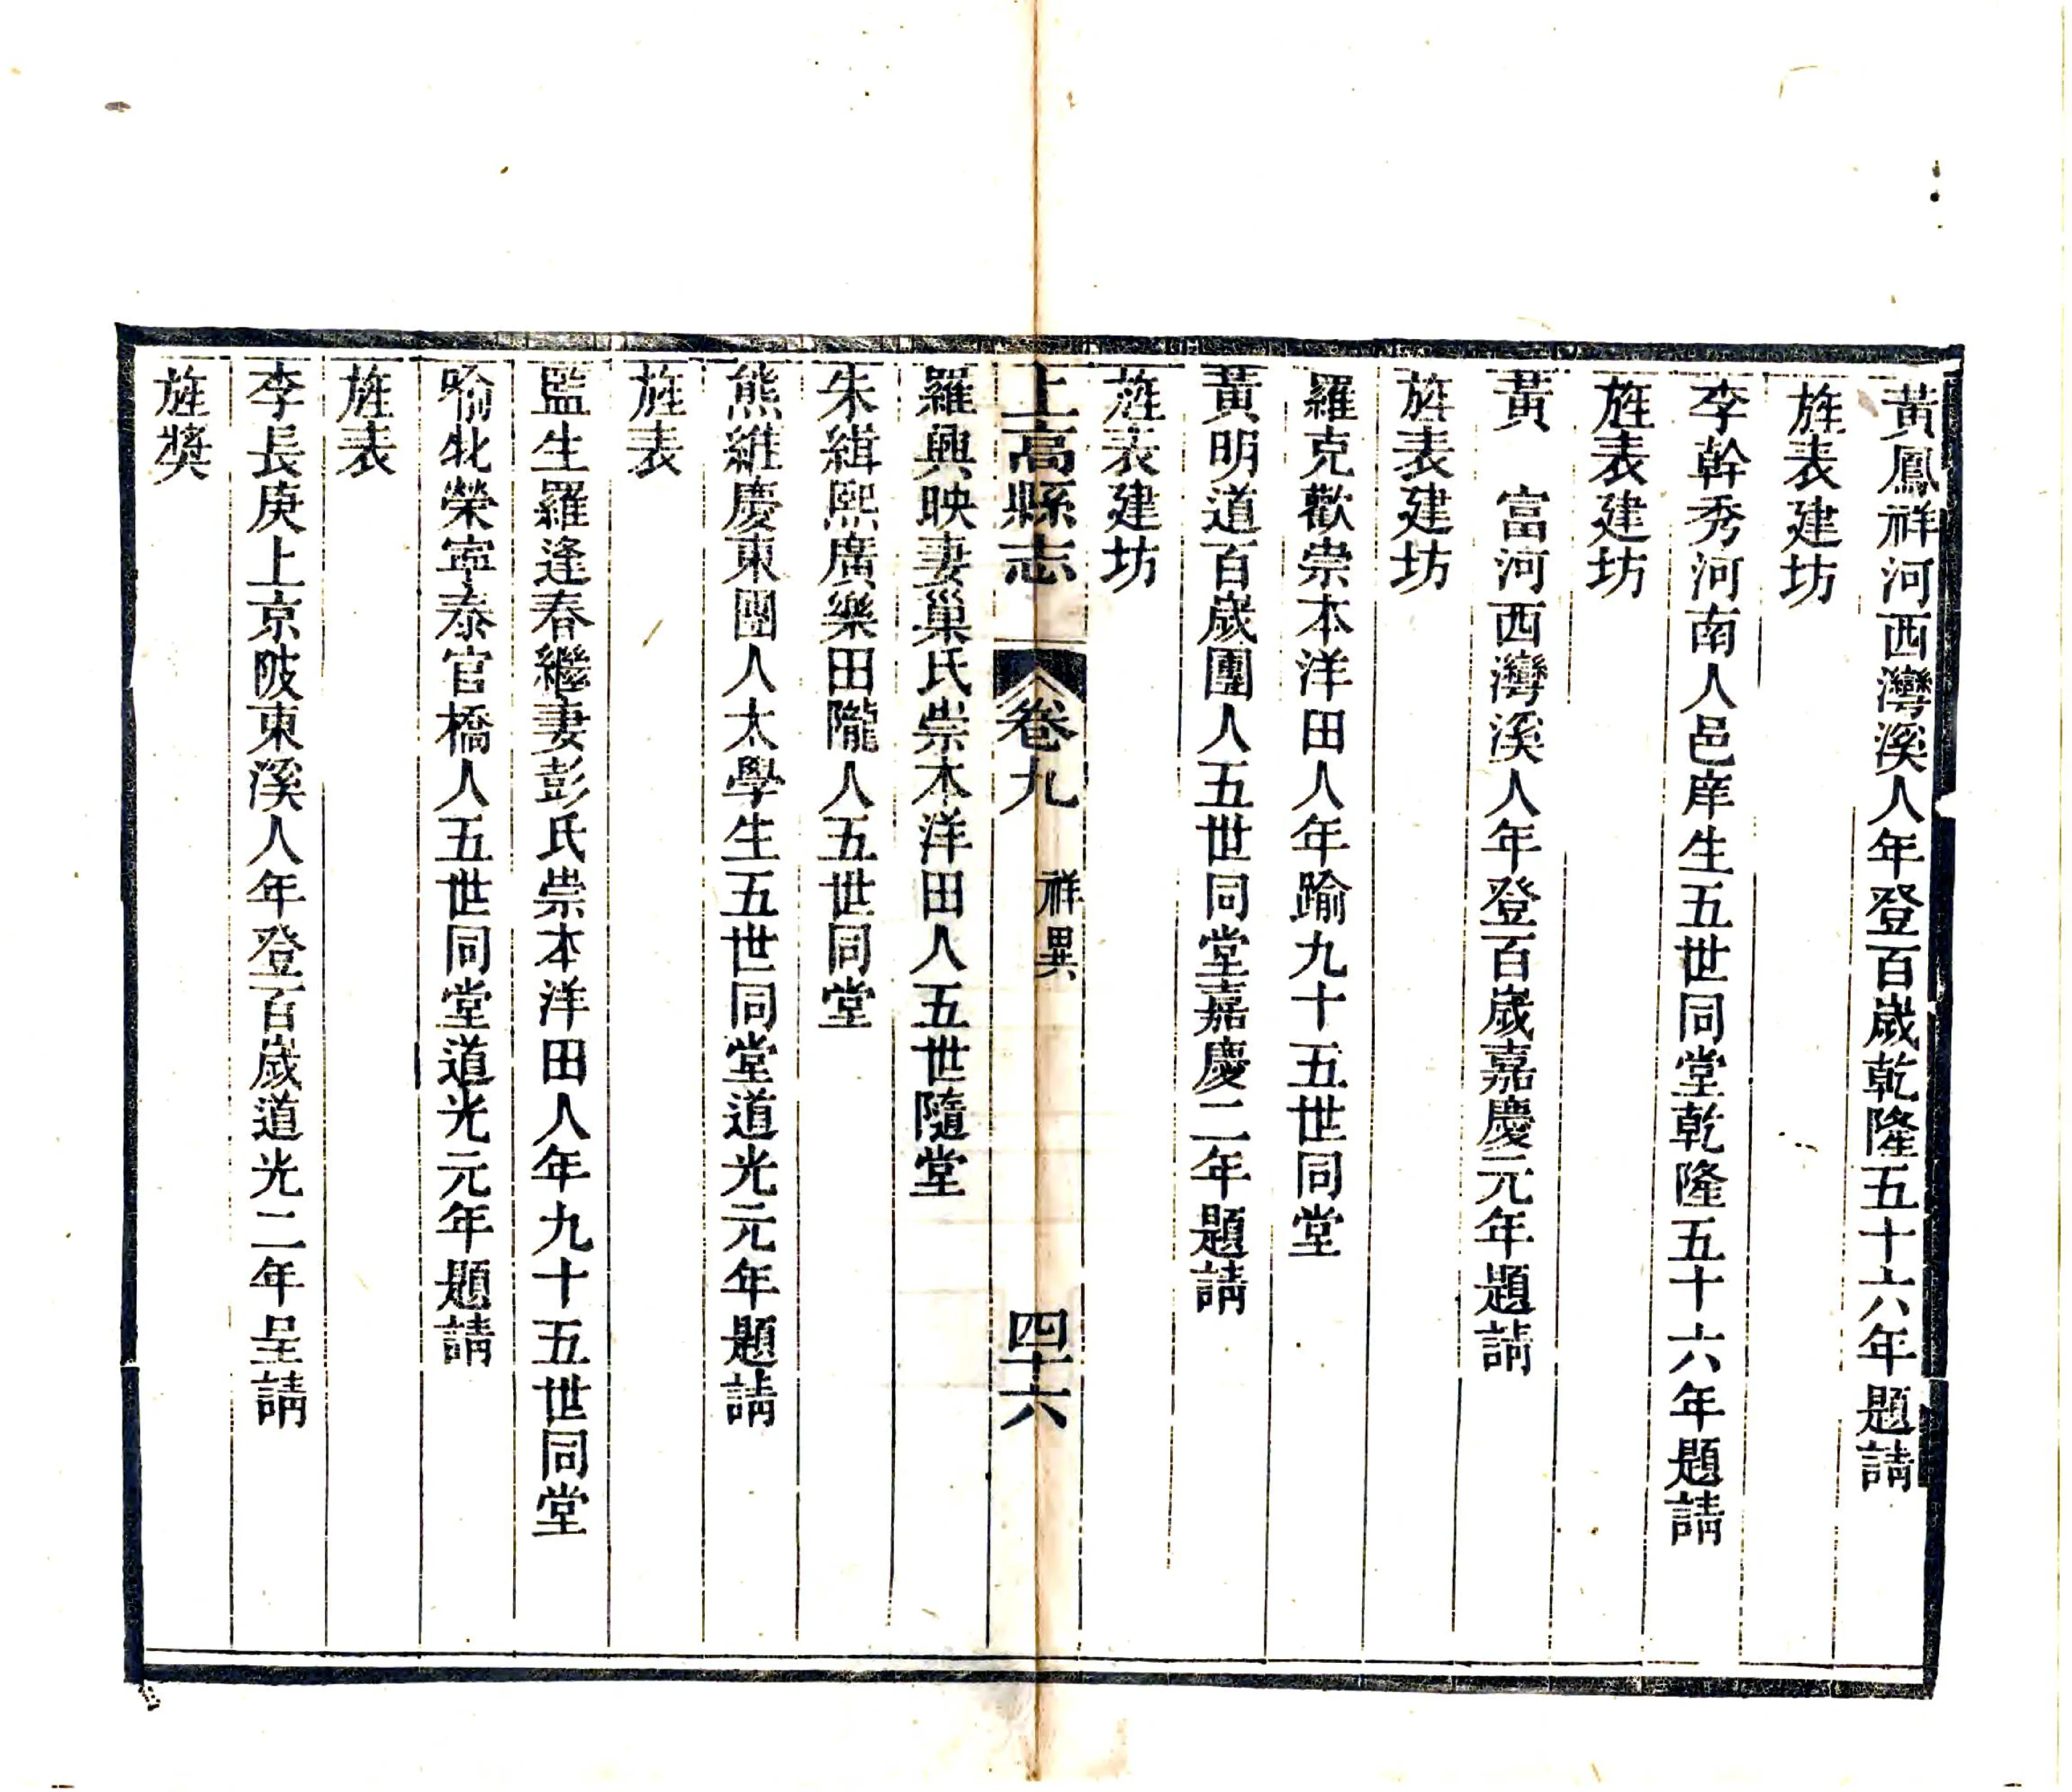 黃鳳祥河西灣溪人年登百歲乾隆五十六年題請
旌表建坊
李幹秀河南人邑庠生五世同堂乾隆五十六年題請
旌表建坊
黃　富河西灣溪人年登百歲嘉慶元年題請
旌表建坊
羅克歡崇本洋田人年踰九十五世同堂
黃明道百歲團人五世同堂嘉慶二年題請
旌表建坊
上高縣志　卷九　祥異　四十六
羅興映妻巢氏崇本洋田人五世隨堂
朱緝熙廣樂田隴人五世同堂
熊維慶東團人太學生五世同堂道光元年題請
旌表
監生羅逢春繼妻彭氏崇本洋田人年九十五世同堂
喻牝榮寧泰官橋人五世同堂道光元年題請
旌表
李長庚上京陂東溪人年登百歲道光二年呈請
旌獎